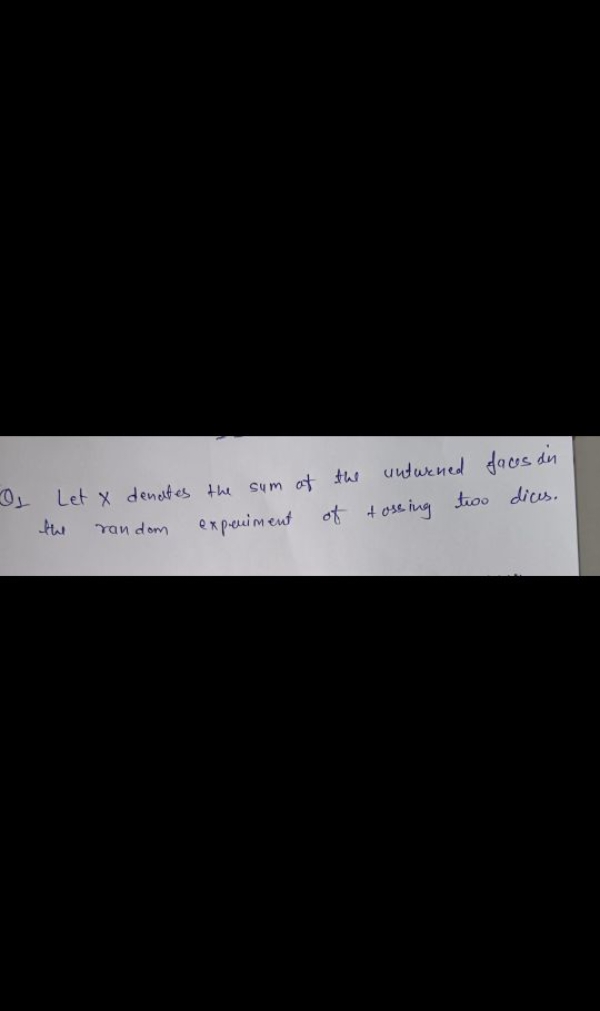 Q1 Let X denotes the sum of the unturned faces in
the random experiment of tossing two dices.